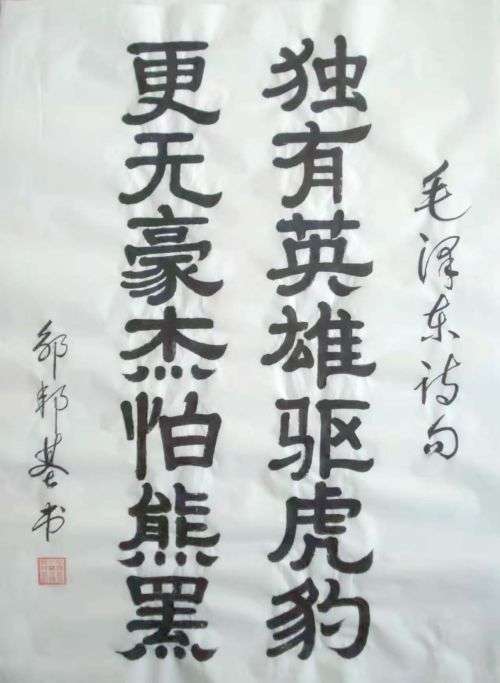 毛泽东诗句
独有英雄驱虎豹
更无豪杰怕熊罴
邹邦基书